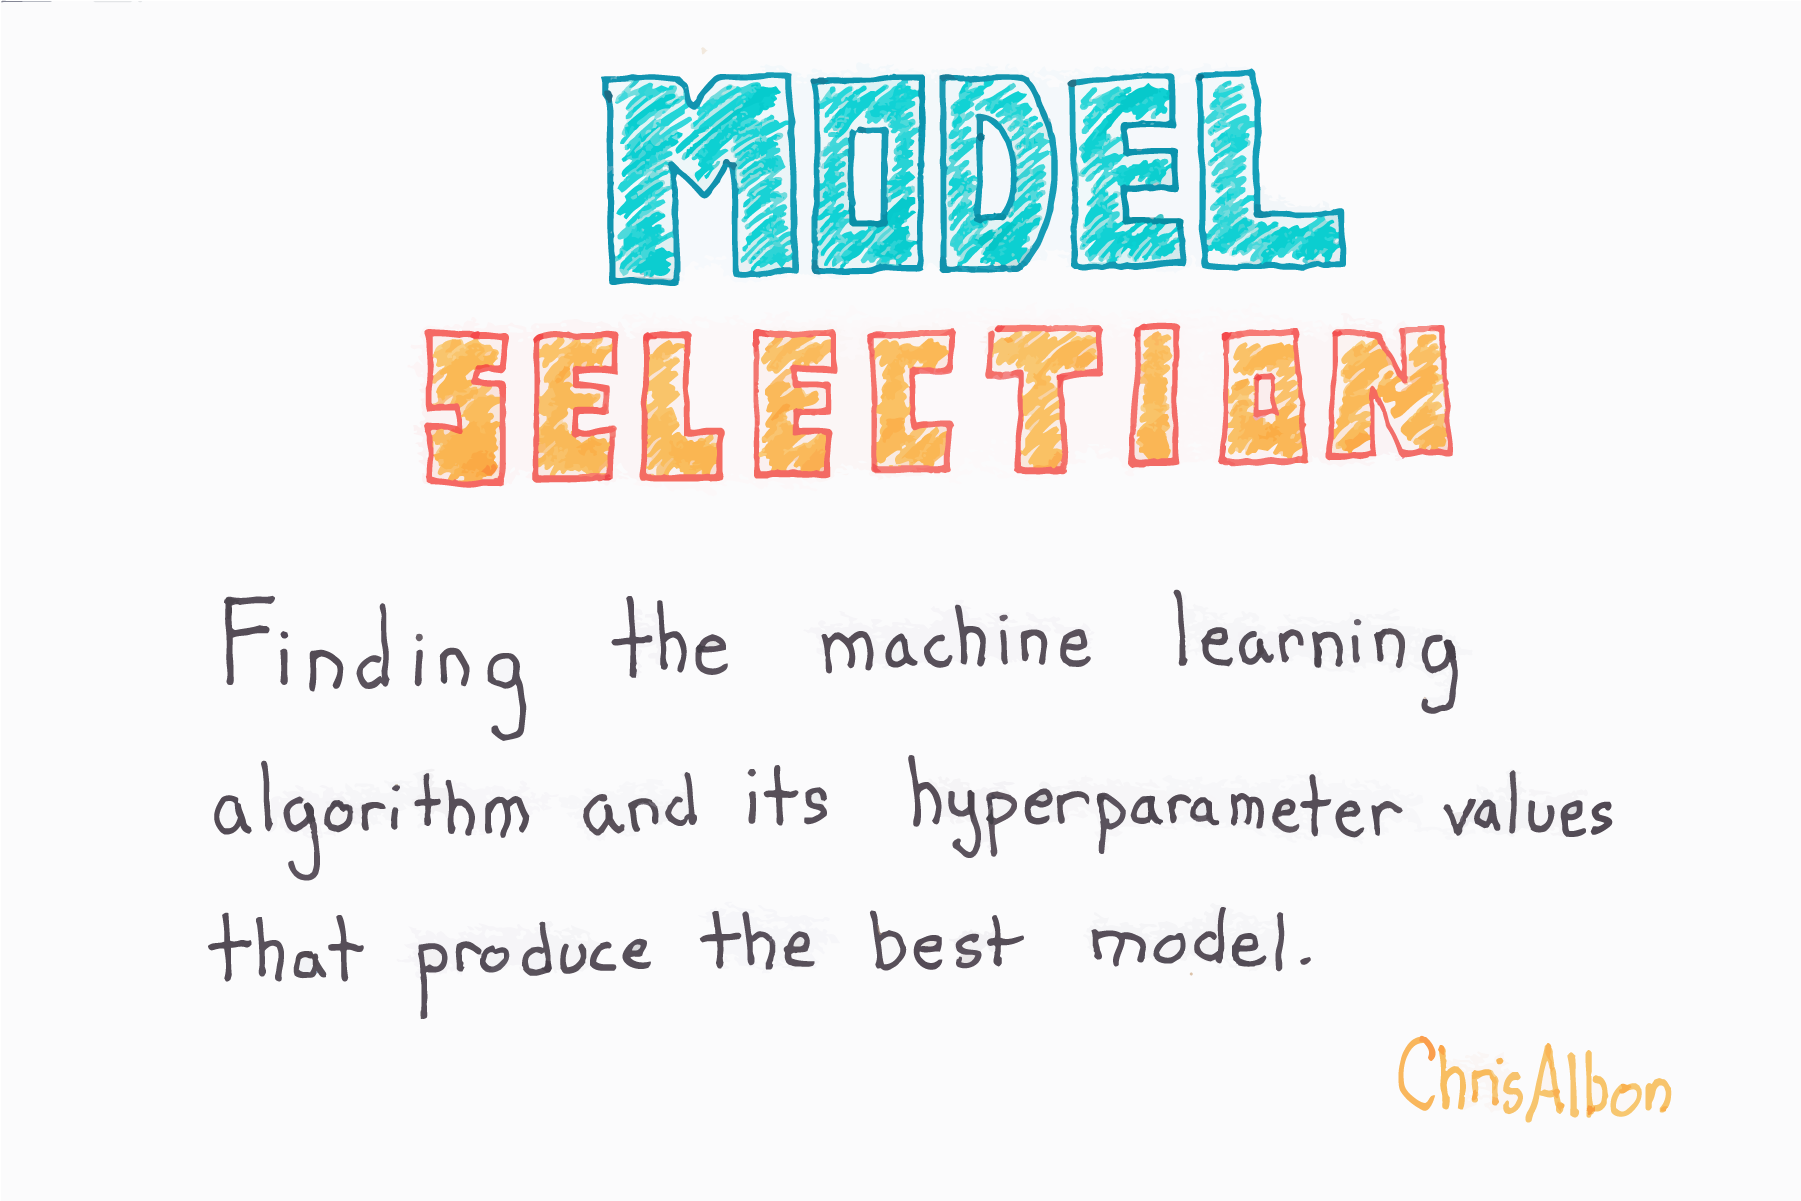 MODEL
SELECTION
Finding the machine learning
algorithm and its hyperparameter values
that produce the best model.
ChrisAlbon